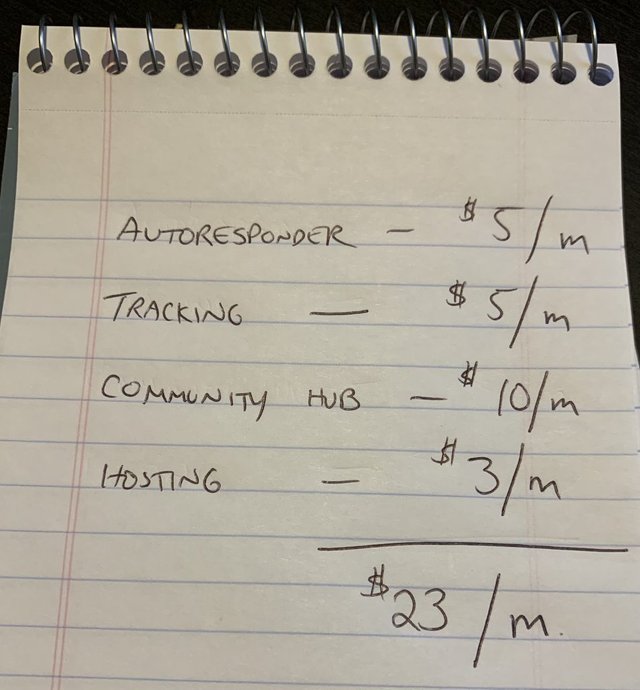 AUTORESPONDER - $5/m
TRACKING — $5/m
COMMUNITY HUB — $10/m
HOSTING — $3/m
$23/m.